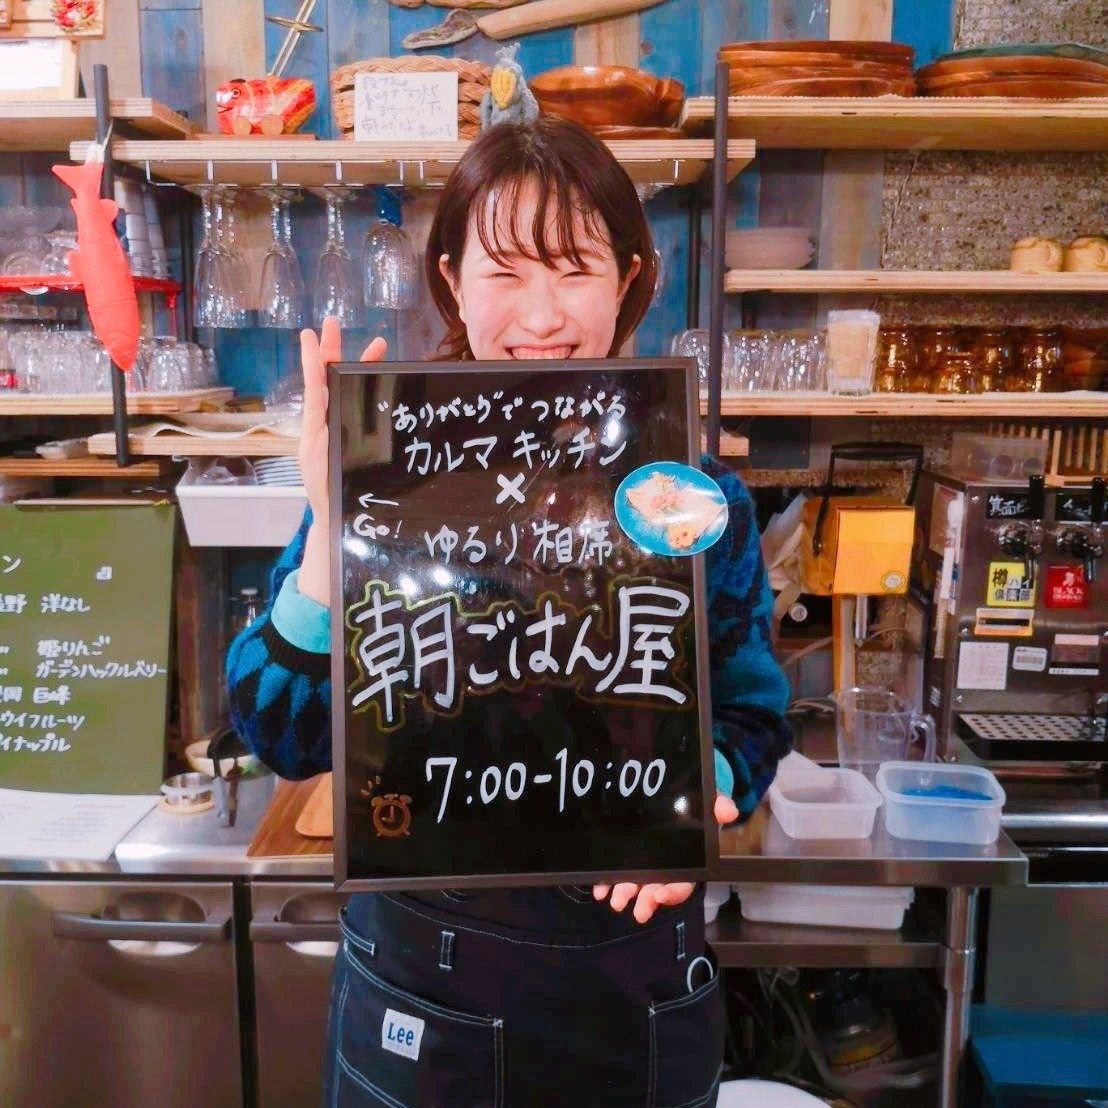 "ありがとう"でつながる
カルマキッチン
×
←
Go!
ゆるり相席
朝ごはん屋
7:00-10:00
Lee
ン
野 洋なし
〃 姫りんご
〃 ガーデンハックルベリー
岡 巨峰
ウイフルーツ
イナップル
箕面ビー
樽ハイ
倶楽部
BLACK